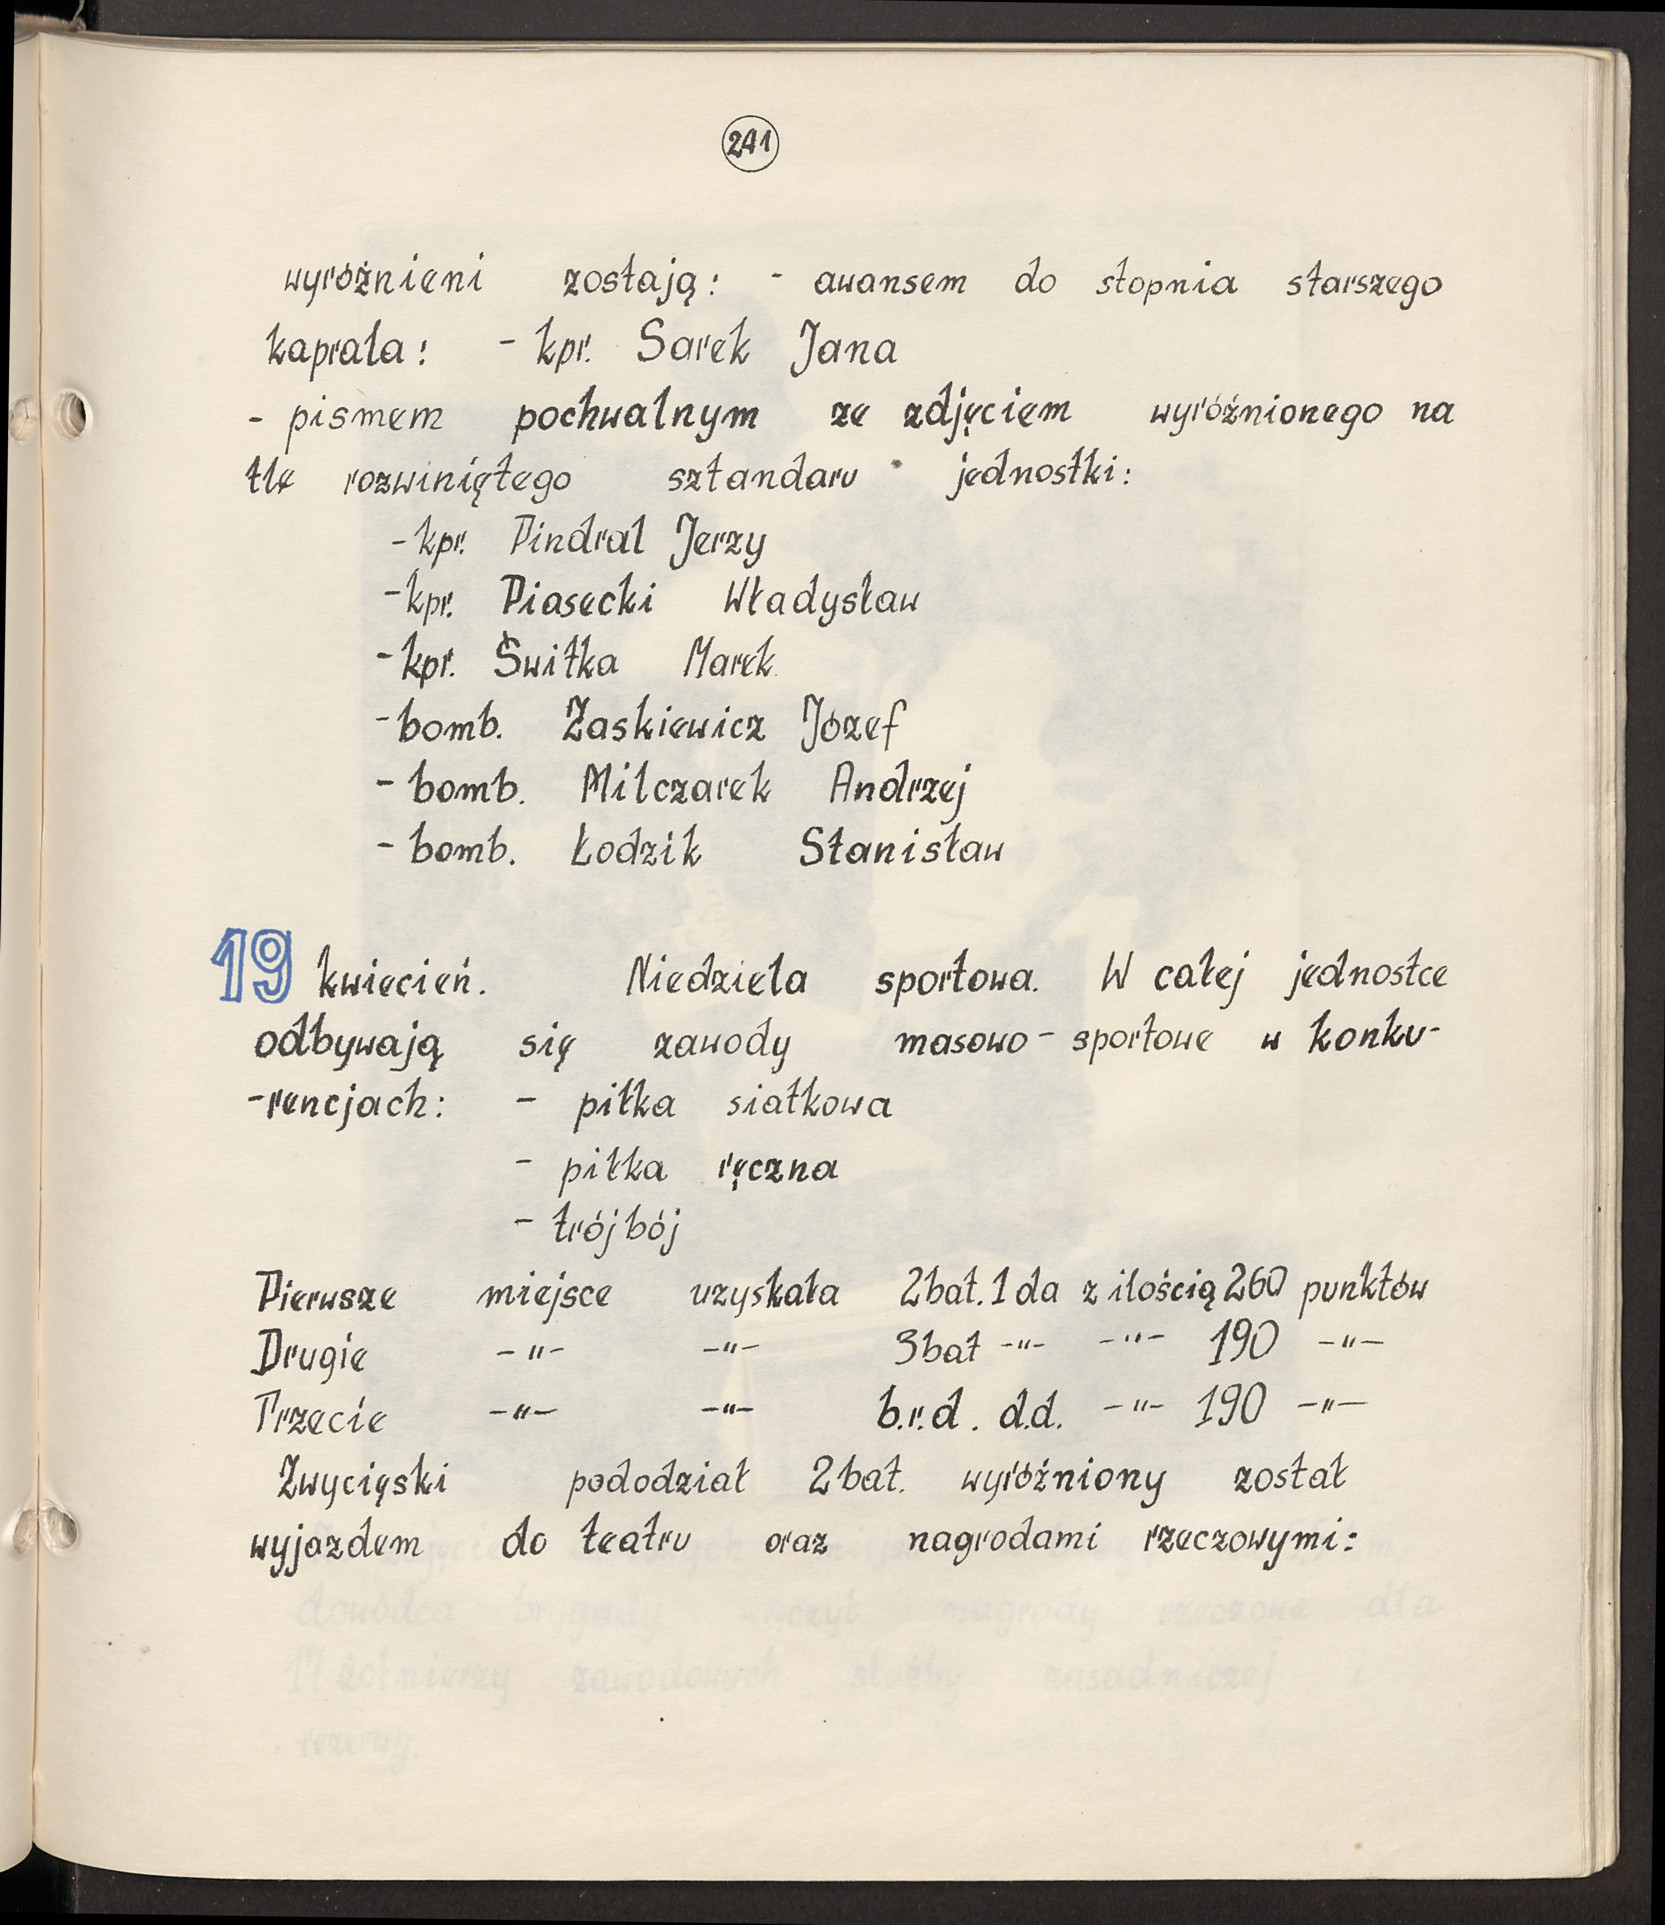 241
wyróżnieni zostają: - awansem do stopnia starszego
kaprala: - kpr. Sarek Jana
- pismem pochwalnym ze zdjęciem wyróżnionego na
tle rozwiniętego sztandaru jednostki:
- kpr. Pindral Jerzy
- kpr. Piasecki Władysław
- kpr. Świtka Marek
- bomb. Zaskiewicz Józef
- bomb. Milczarek Andrzej
- bomb. Łodzik Stanisław
19 kwiecień. Niedziela sportowa. W całej jednostce
odbywają się zawody masowo - sportowe w konku-
-rencjach: - piłka siatkowa
- piłka ręczna
- trójbój
Pierwsze miejsce uzyskała 2bat. 1da z ilością 260 punktów
Drugie -"- -"- 3bat -"- -"- 190 -"-
Trzecie -"- -"- b.r.d. d.d. -"- 190 -"-
Zwycięski pododział 2bat. wyróżniony został
wyjazdem do teatru oraz nagrodami rzeczowymi:
dowódca brygady wręczył nagrody rzeczowe dla
17 żołnierzy zawodowych, służby zasadniczej i
rezerwy.